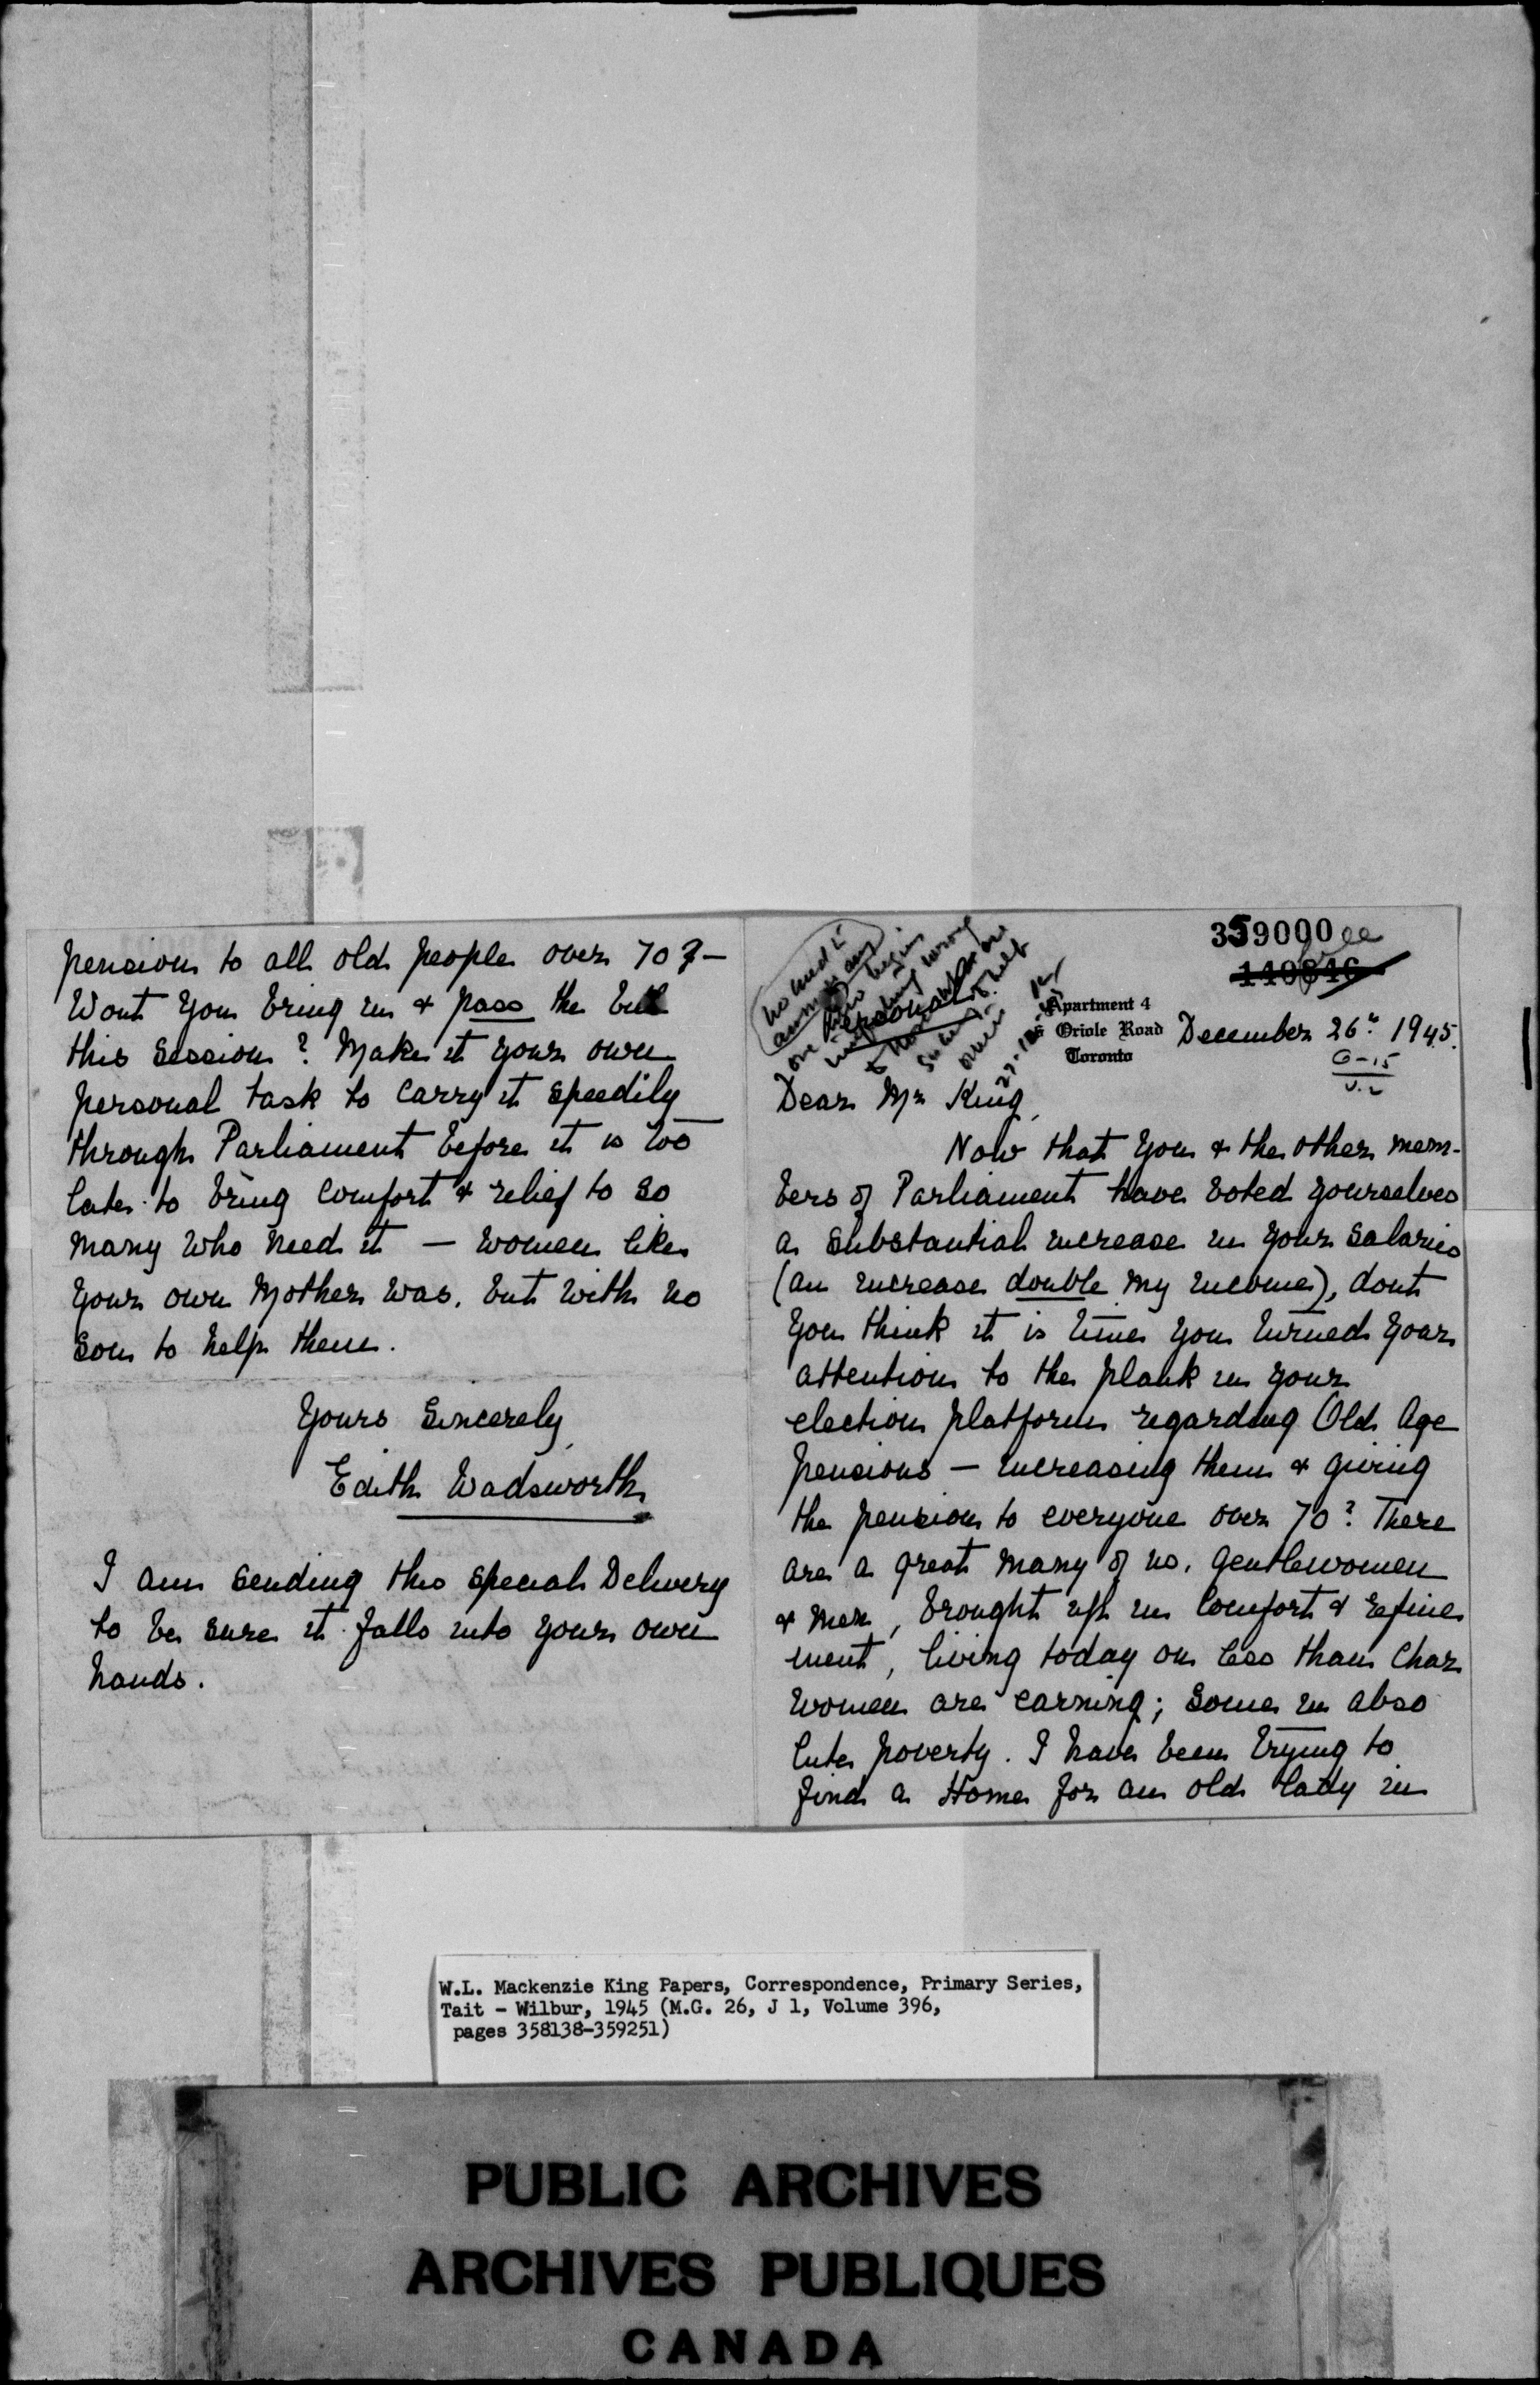 pension to all old people over 70?—
Wont you bring in & pass the bill
this session? Make it your own
personal task to carry it speedily
through Parliament before it is too
late to bring comfort & relief to so
many who need it — women like
your own Mother was, but with no
son to help them.
Yours Sincerely,
Edith Wadsworth
I am sending this special Delivery
to be sure it falls into your own
hands.
359000
140846
Personal
Apartment 4
Oriole Road
Toronto
December 26th 1945.
G-15
Dear Mr King,
Now that you & the other mem-
bers of Parliament have voted yourselves
a substantial increase in your salaries
(an increase double my income), dont
you think it is time you turned your
attention to the plank in your
election platform regarding Old Age
Pensions — increasing them & giving
the pension to everyone over 70? There
are a great many of us, gentlewomen
& men, brought up in comfort & refine
ment, living today on less than char
women are earning; some in abso
lute poverty. I have been trying to
find a Home for an old lady in
W.L. Mackenzie King Papers, Correspondence, Primary Series,
Tait - Wilbur, 1945 (M.G. 26, J 1, Volume 396,
pages 358138-359251)
PUBLIC ARCHIVES
ARCHIVES PUBLIQUES
CANADA